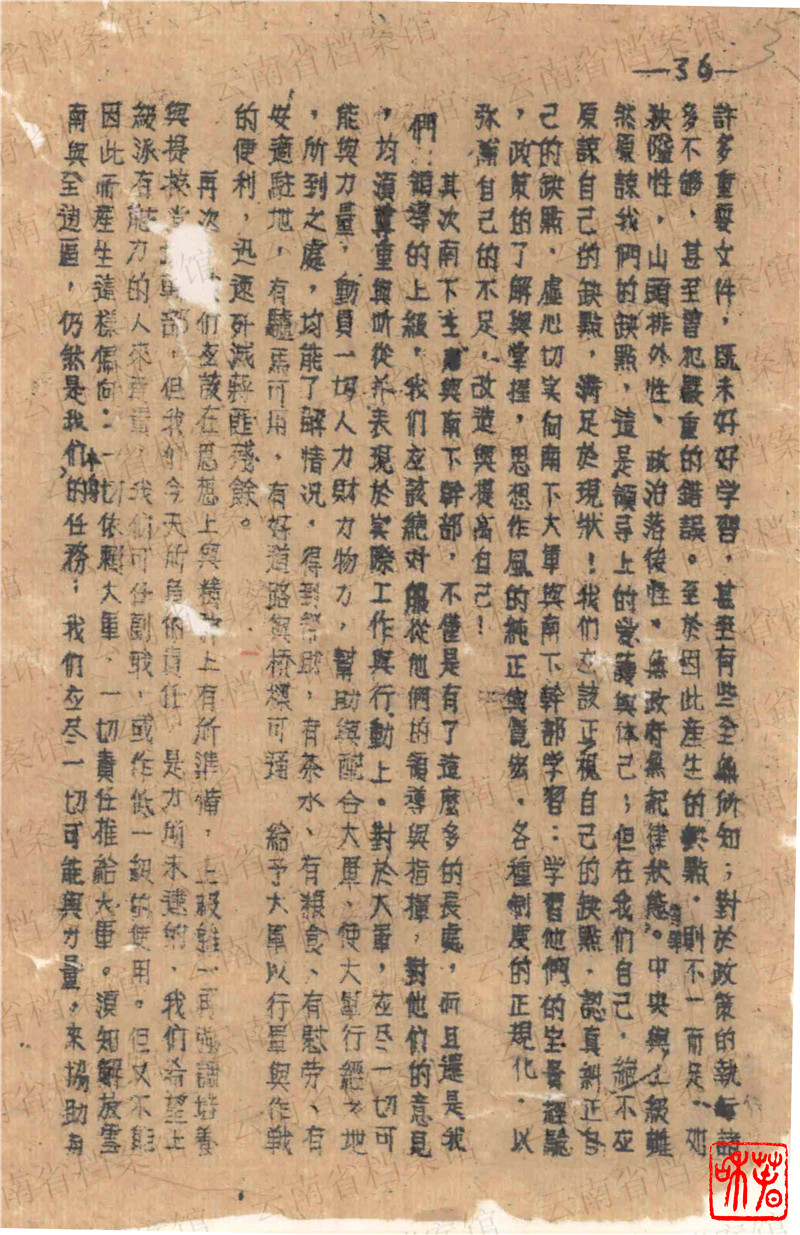 —36—
許多重要文件，既未好好学習，甚至有些全無所知；對於政策的執行諸
多不够，甚至曾犯嚴重的錯誤。至於因此産生的缺點，則不一而足。如
狹隘性，山頭排外性、政治落後性。無政府無紀律狀態。中央與上級雖
然原諒我們的缺點，這是領导上的爱護與体己；但在我們自己，絕不应
原諒自己的缺點，满足於現狀！我們应該正視自己的缺點，認真糾正自
己的缺點，虛心切实向南下大軍與南下幹部学習：学習他們的宝貴經驗
，政策的了解與掌握，思想作風的純正與寬宏。各種制度的正規化，以
弥補自己的不足，改造與提高自己！
其次南下主力與南下幹部，不僅是有了這麽多的長處，而且還是我
們領導的上級，我们应該絕对服從他們的領導與指揮，對他们的意見
，均須尊重與听從并表現於实際工作與行動上。對於大軍，应尽一切可
能與力量，動員一切人力財力物力，幫助與配合大軍、使大軍行經之地
，所到之處，均能了解情况，得到幫助，有茶水、有粮食、有慰劳、有
安適駐地，有騾馬可用，有好道路與桥樑可通 給予大軍以行軍與作戰
的便利，迅速歼滅蔣匪殘餘。
再次 我们应該在思想上與精神上有所準備，上級雖一再强調培養
與提拔 幹部，但我們今天所負的責任 是力所未逮的，我們希望上
級派有能力的人來 我们可任副职，或作低一級的使用。但又不能
因此而產生這樣偏向：一切依賴大軍 一切責任推給大軍。須知解放雲
南與全边區，仍然是我们本身的任務，我們应尽一切可能與力量，來協助南
云南省档案馆